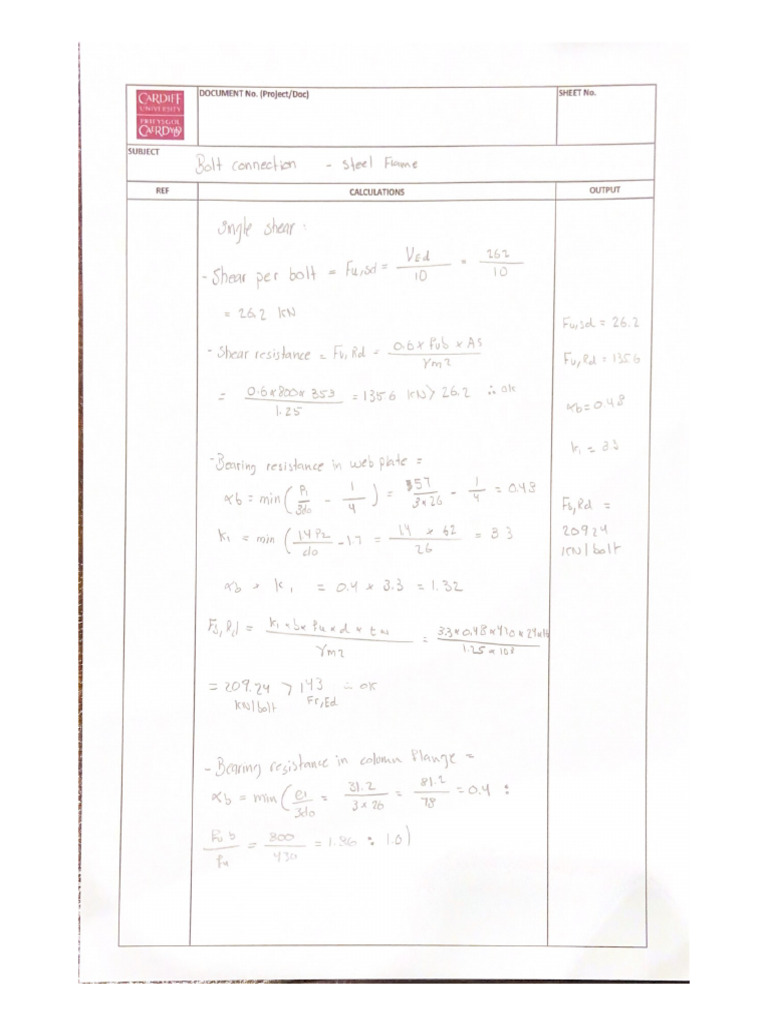 CARDIFF
UNIVERSITY
PRIFYSGOL
CAERDYDD
DOCUMENT No. (Project/Doc)
SHEET No.
SUBJECT
Bolt connection - steel Frame
REF
CALCULATIONS
OUTPUT
Single shear :
- Shear per bolt = Fu,sd = VEd / 10 = 262 / 10
= 26.2 kN
Fu,sd = 26.2
- Shear resistance = Fu,Rd = 0.6 x Fub x As / γm2
Fu,Rd = 1356
= 0.6 x 800 x 353 / 1.25 = 1356 kN > 26.2 ∴ ok
αb = 0.48
k1 = 3.5
- Bearing resistance in web plate =
αb = min ( P1 / 3do - 1 / 4 ) = 57 / 3 x 26 - 1 / 4 = 0.48
Fs,Rd =
20924
KN/bolt
k1 = min ( 14 P2 / do - 1.7 = 14 x 62 / 26 = 3 3
αb * k1 = 0.4 x 3.3 = 1.32
Fs,Rd = k1 x b x Fu x d x tw / γm2 = 3.3 x 0.48 x 420 x 24 x 16 / 1.25 x 103
= 209.24 > 143 ∴ ok
KN/bolt Fr,Ed
- Bearing resistance in column flange =
αb = min ( e1 / 3do = 31.2 / 3 x 26 = 81.2 / 78 = 0.4 :
Fub / Fu = 800 / 430 = 1.86 : 1.0 )